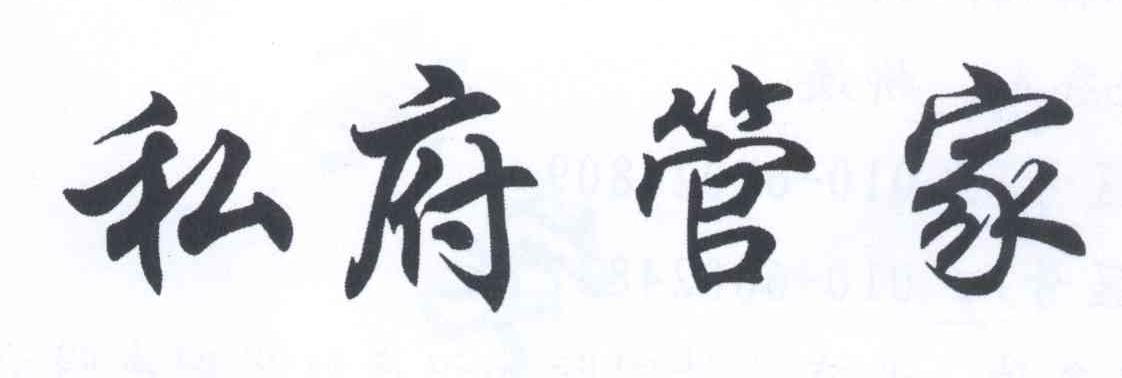 私府管家